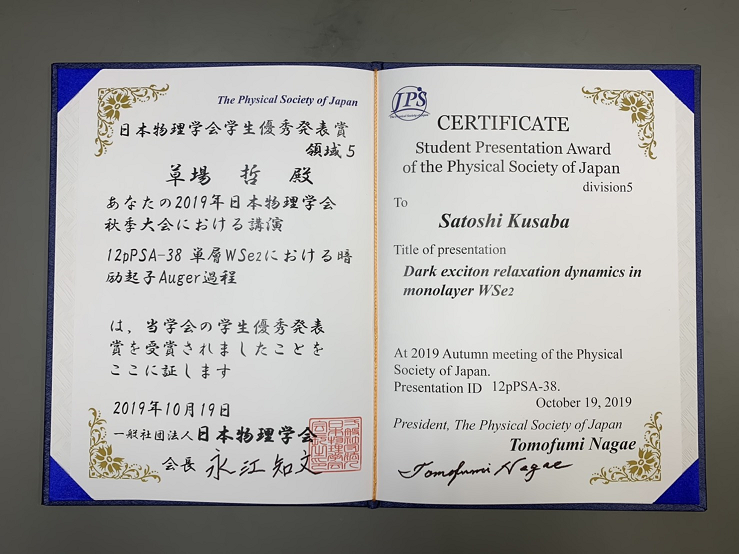 The Physical Society of Japan
日本物理学会学生優秀発表賞
領域5
草場 哲 殿
あなたの2019年日本物理学会
秋季大会における講演
12pPSA-38 単層WSe2における暗
励起子Auger過程
は、当学会の学生優秀発表
賞を受賞されましたことを
ここに証します
2019年10月19日
一般社団法人日本物理学会
会長 永江知文
JPS
CERTIFICATE
Student Presentation Award
of the Physical Society of Japan
division5
To
Satoshi Kusaba
Title of presentation
Dark exciton relaxation dynamics in
monolayer WSe2
At 2019 Autumn meeting of the Physical
Society of Japan.
Presentation ID 12pPSA-38.
October 19, 2019
President, The Physical Society of Japan
Tomofumi Nagae
Tomofumi Nagae